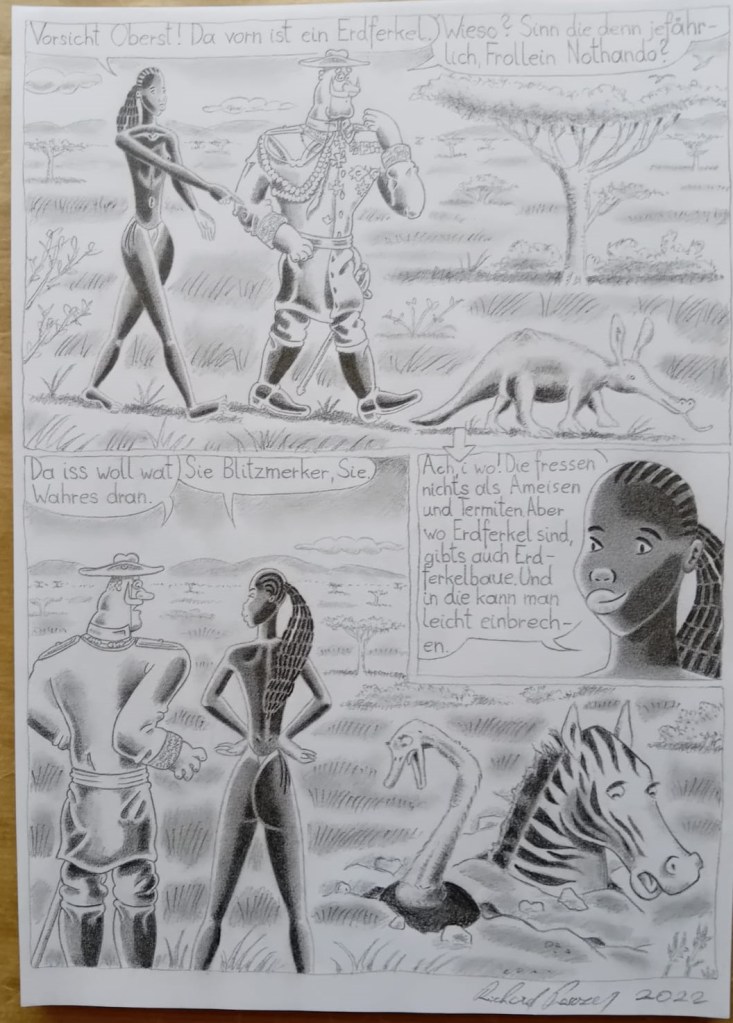 Vorsicht Oberst! Da vorn ist ein Erdferkel.
Wieso? Sinn die denn jefähr-
lich, Frollein Nothando?
Ach, i wo! Die fressen
nichts als Ameisen
und Termiten. Aber
wo Erdferkel sind,
gibts auch Erd-
ferkelbaue. Und
in die kann man
leicht einbrech-
en.
Da iss woll wat
Wahres dran.
Sie Blitzmerker, Sie.
Richard 2022